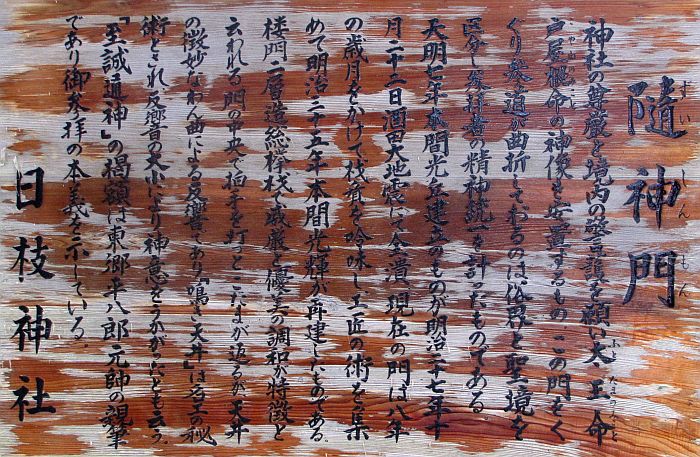 隨神門
ずいしんもん
神社の尊厳と境内の警護を願い太玉命
戸屋櫃命の神像を安置するもの、この門をく
ぐり参道が曲折しているのは俗界と聖境を
区分し参拝者の精神統一を計ったものである
天明七年本間光丘建立のものが明治二十七年十
月二十二日酒田大地震にて全潰現在の門は八年
の歳月をかけて材質を吟味し工匠の術を集
めて明治三十五年本間光輝が再建したものである。
楼門二層造総欅材で威厳と優美の調和が特徴と
云われる門の中央で拍手を打と、こだまが返るが、天井
の微妙なわん曲による反響であり「鳴き天井」は名工の秘
術とされ反響の大小により神意をうかがったとも云う。
「至誠通神」の掲額は東郷平八郎元帥の親筆
であり御参拝の本義を示している。
日枝神社